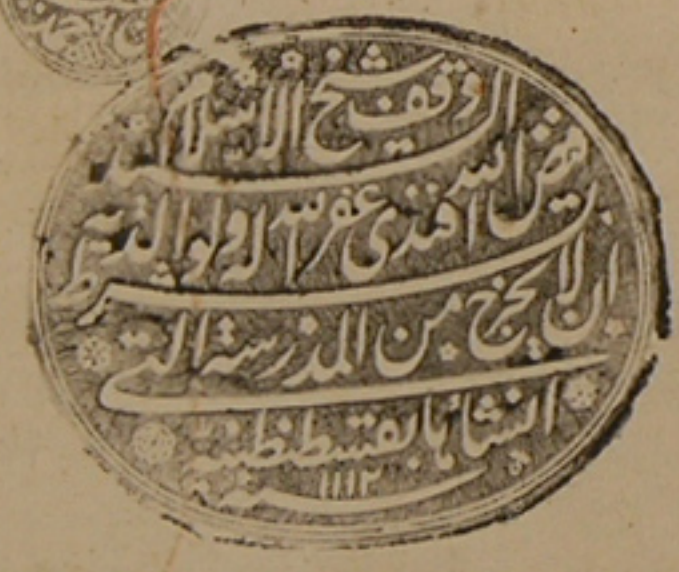 وقف شيخ الاسلام السيد
فيض الله افندى غفر الله له ولوالديه بشرط
ان لا يخرج من المدرسة التى
انشأها بقسطنطينية
سنة ١١١٢